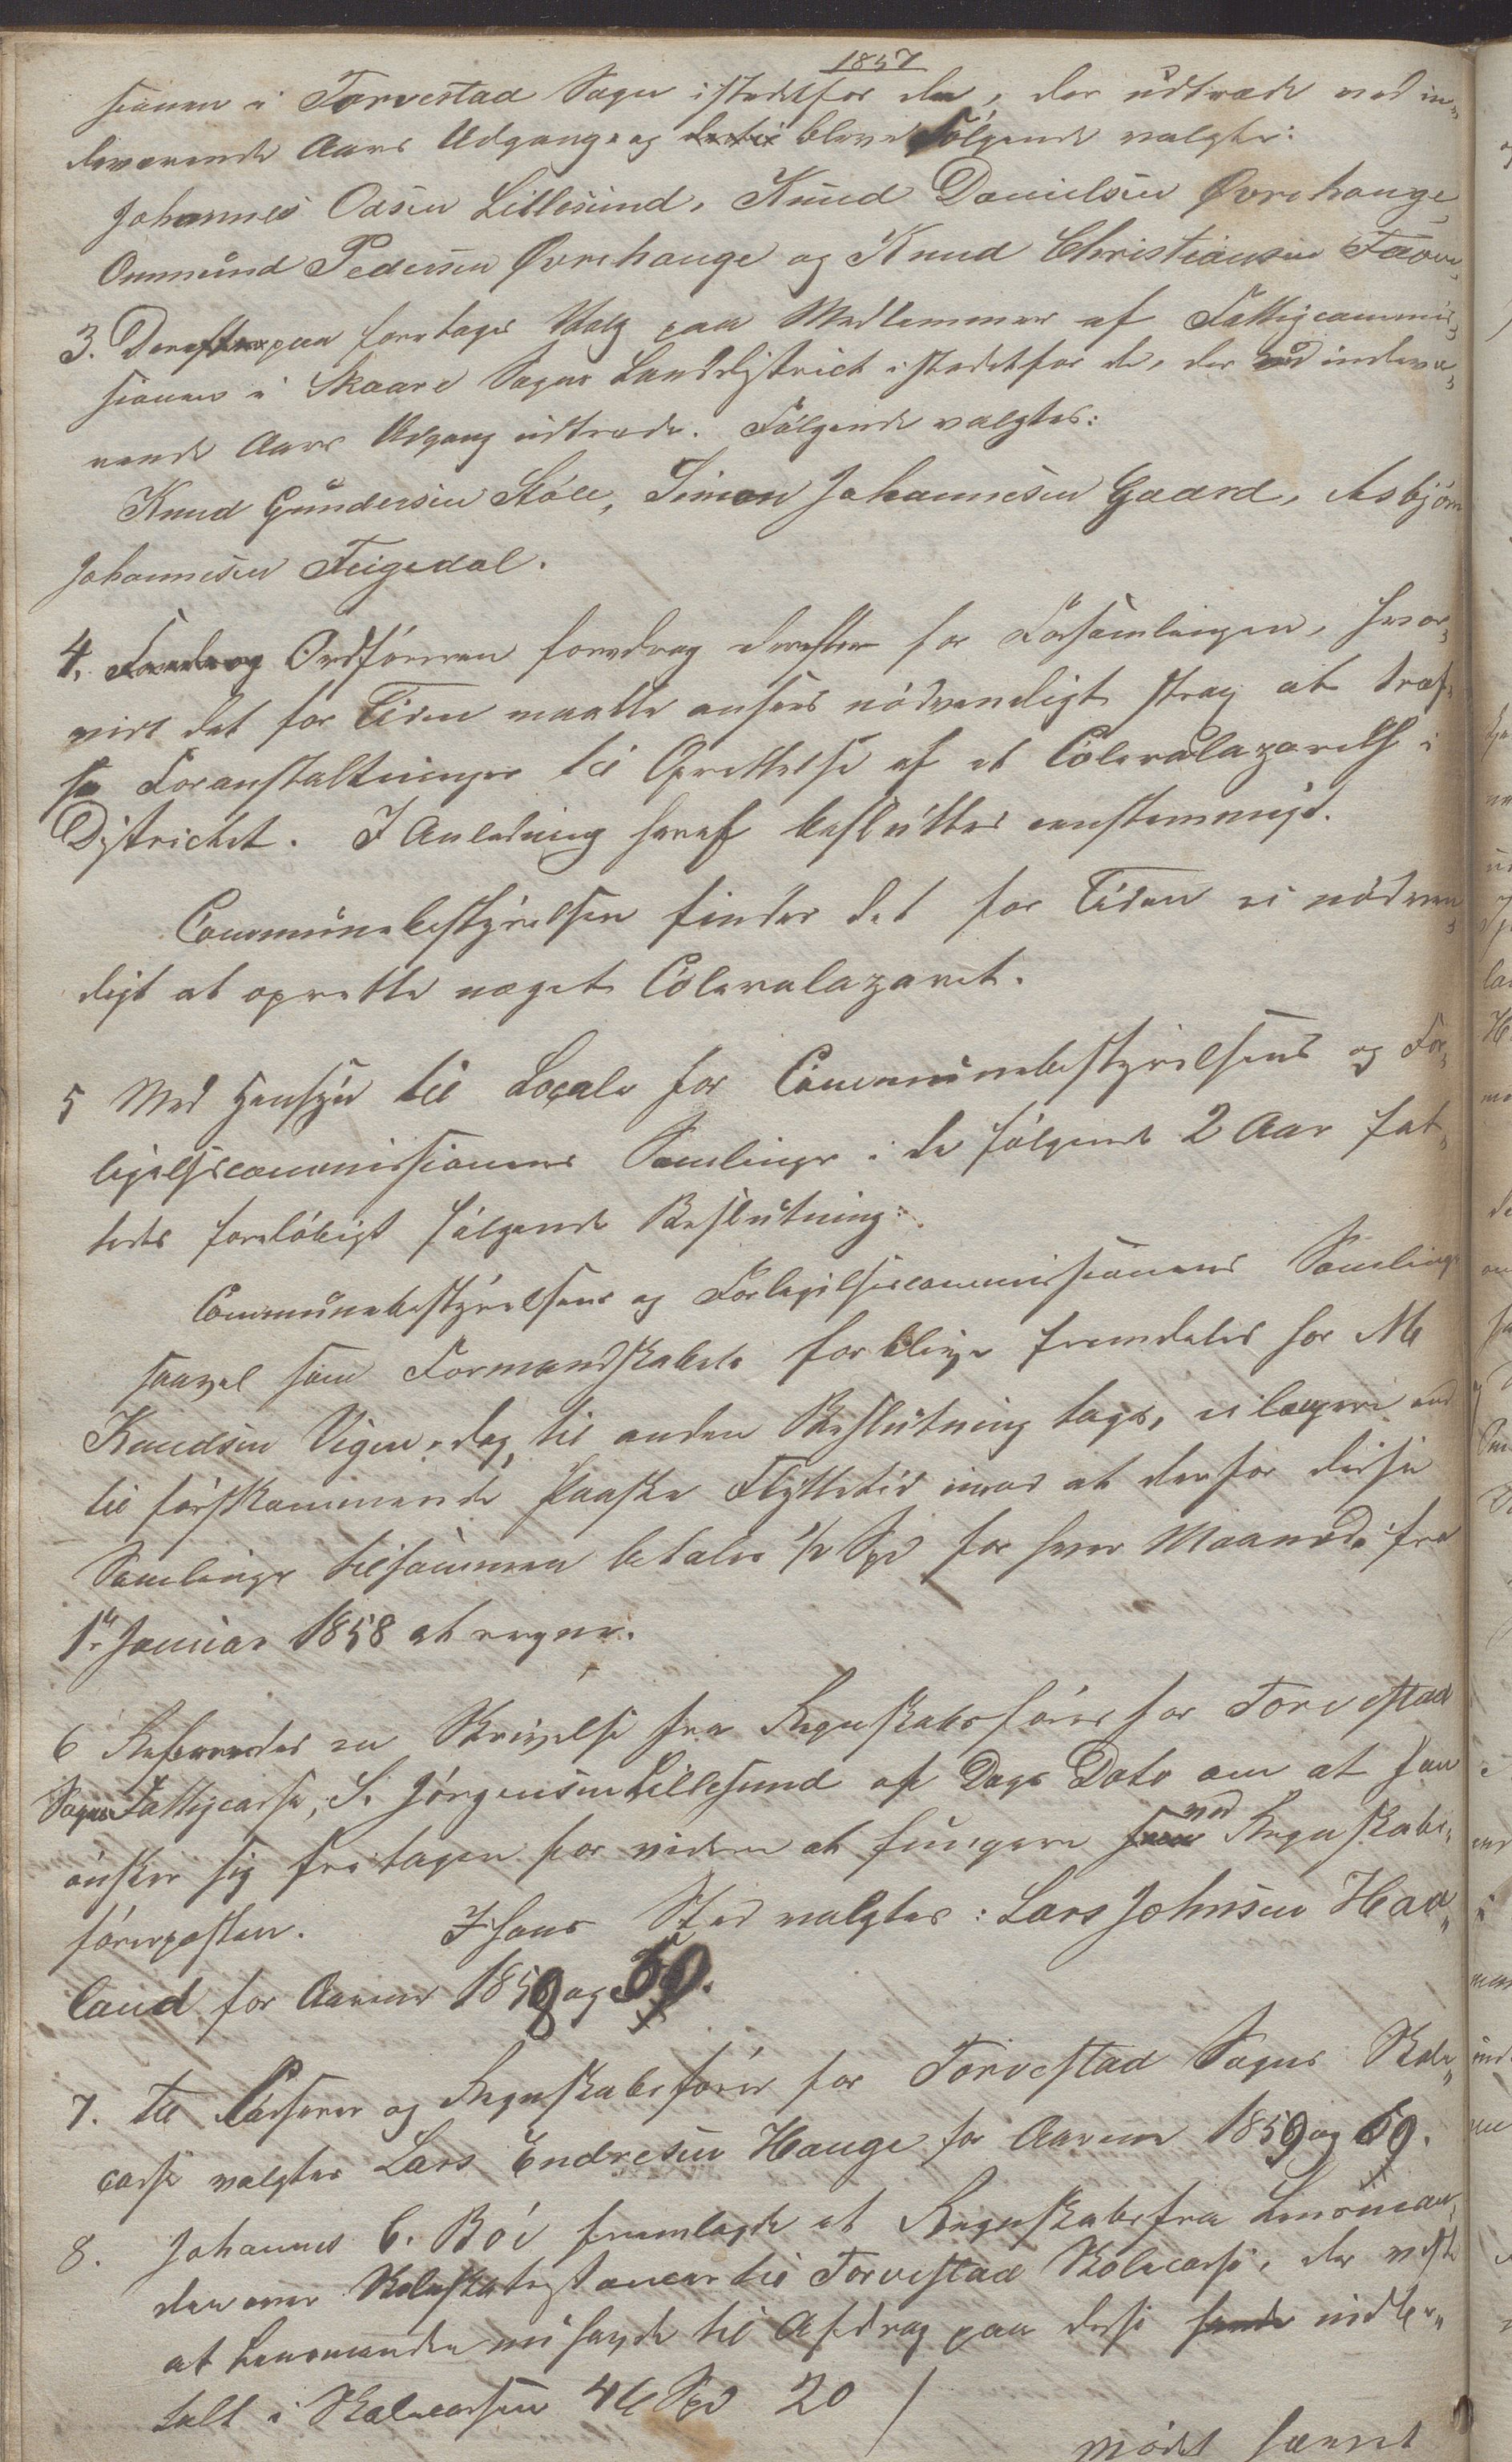 1857
sionen i Torvestad Sogn istedetfor de, der udtræde ved in-
deværende Aars Udgang og dertil bleve Følgende valgte:
Johannes Olsen Lillesund, Knud Danielsen Øvrehauge
Ommund Pedersen Øvrehauge og Knud Christiansen
3. Derefter paa foretages Valg paa Medlemmer af Fattigcommis-
sionen i Skaare Sogns Landdistrict istedetfor de, der ved indevæ-
rende Aars Udgang udtræde. Følgende valgtes:
Knud Gundersen Støle, Simon Johannesen Gaard, Asbjørn
Johannesen Feigedal.
4. Foredrog Ordføreren foredrog derefter for Forsamlingen, hvor-
vidt det for Tiden maatte ansees nødvendigt strax at træf-
fe Foranstaltninger til Oprettelse af et Coleralazareth i
Districtet. I Anledning heraf besluttes eenstemmigt.
Communebestyrelsen finder det for Tiden ei nødven-
digt at oprette noget Coleralazaret.
5 Med Hensyn til Locale for Communebestyrelsens og For-
ligelsescommissionens Samlinger i de følgende 2 Aar fat-
tedes foreløbigt følgende Beslutning:
Communebestyrelsens og Forligelsescommissionens Samlinger
saavel som Formandskabets forblive fremdeles hos M
Knudsen Vigen, dog, til anden Beslutning tages, ei længere end
til førstkommende Paaske Flyttetid imod at der for disse
Samlinger tilsammen betales 1/2 Spd for hver Maaned fra
1ste Januar 1858 at regne.
6 Refereredes en Skrivelse fra Regnskabsfører for Torvestad
Sogns Fattigcasse, S. Jørgensen Lillesund af Dags Dato om at han
ønsker sig fritagen for videre at fungere som ved Regnskabs-
førerposten. I hans Sted valgtes: Lars Johnsen Haa-
land for Aarene 1858 og 59.
7. Til Casserer og Regnskabsfører for Torvestad Sogns Skole-
casse valgtes Lars Endresen Hauge for Aarene 1859 og 59.
8. Johannes C. Bøe fremlagde et Regnskab fra Lensman-
den over Skoleskatrestancer til Torvestad Skolecasse, der viste
at Lensmanden nu havde til Afdrag paa disse havde indbe-
talt i Skolecassen 46 Spd 20 /
Mødet hævet